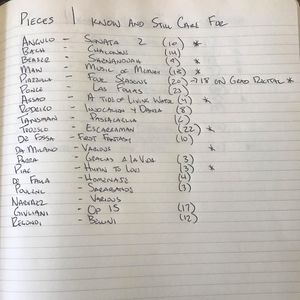 PIECES I KNOW AND STILL CARE FOR
ANGULO - SONATA 2 (10) *
BACH - CHACONNE (14)
BEASER - SHENANDOAH (4) *
MAW - MUSIC OF MEMORY (18) *
PIAZZOLLA - FOUR SEASONS (20) → 18 ON GRAD RECITAL *
PONCE - LAS FOLIAS (23)
ASSAD - A TIDE OF LIVING WATER (4) *
RODRIGO - INVOCACION Y DANZA (8)
TANSMAN - PASSACAGLIA (6)
TROZSKO - ESCARRAMAN (22) *
DE FOSSA - FIRST FANTASY (10)
DA MILANO - VARIOUS *
PARRA - GRACIAS A LA VIDA (3)
PIAF - HYMN TO LOVE (3) *
DE FALLA - HOMENAJE (4)
POULENC - SARABANDE (3)
NARVAEZ - VARIOUS
GIULIANI - OP 15 (17)
REGONDI - BELLINI (12)